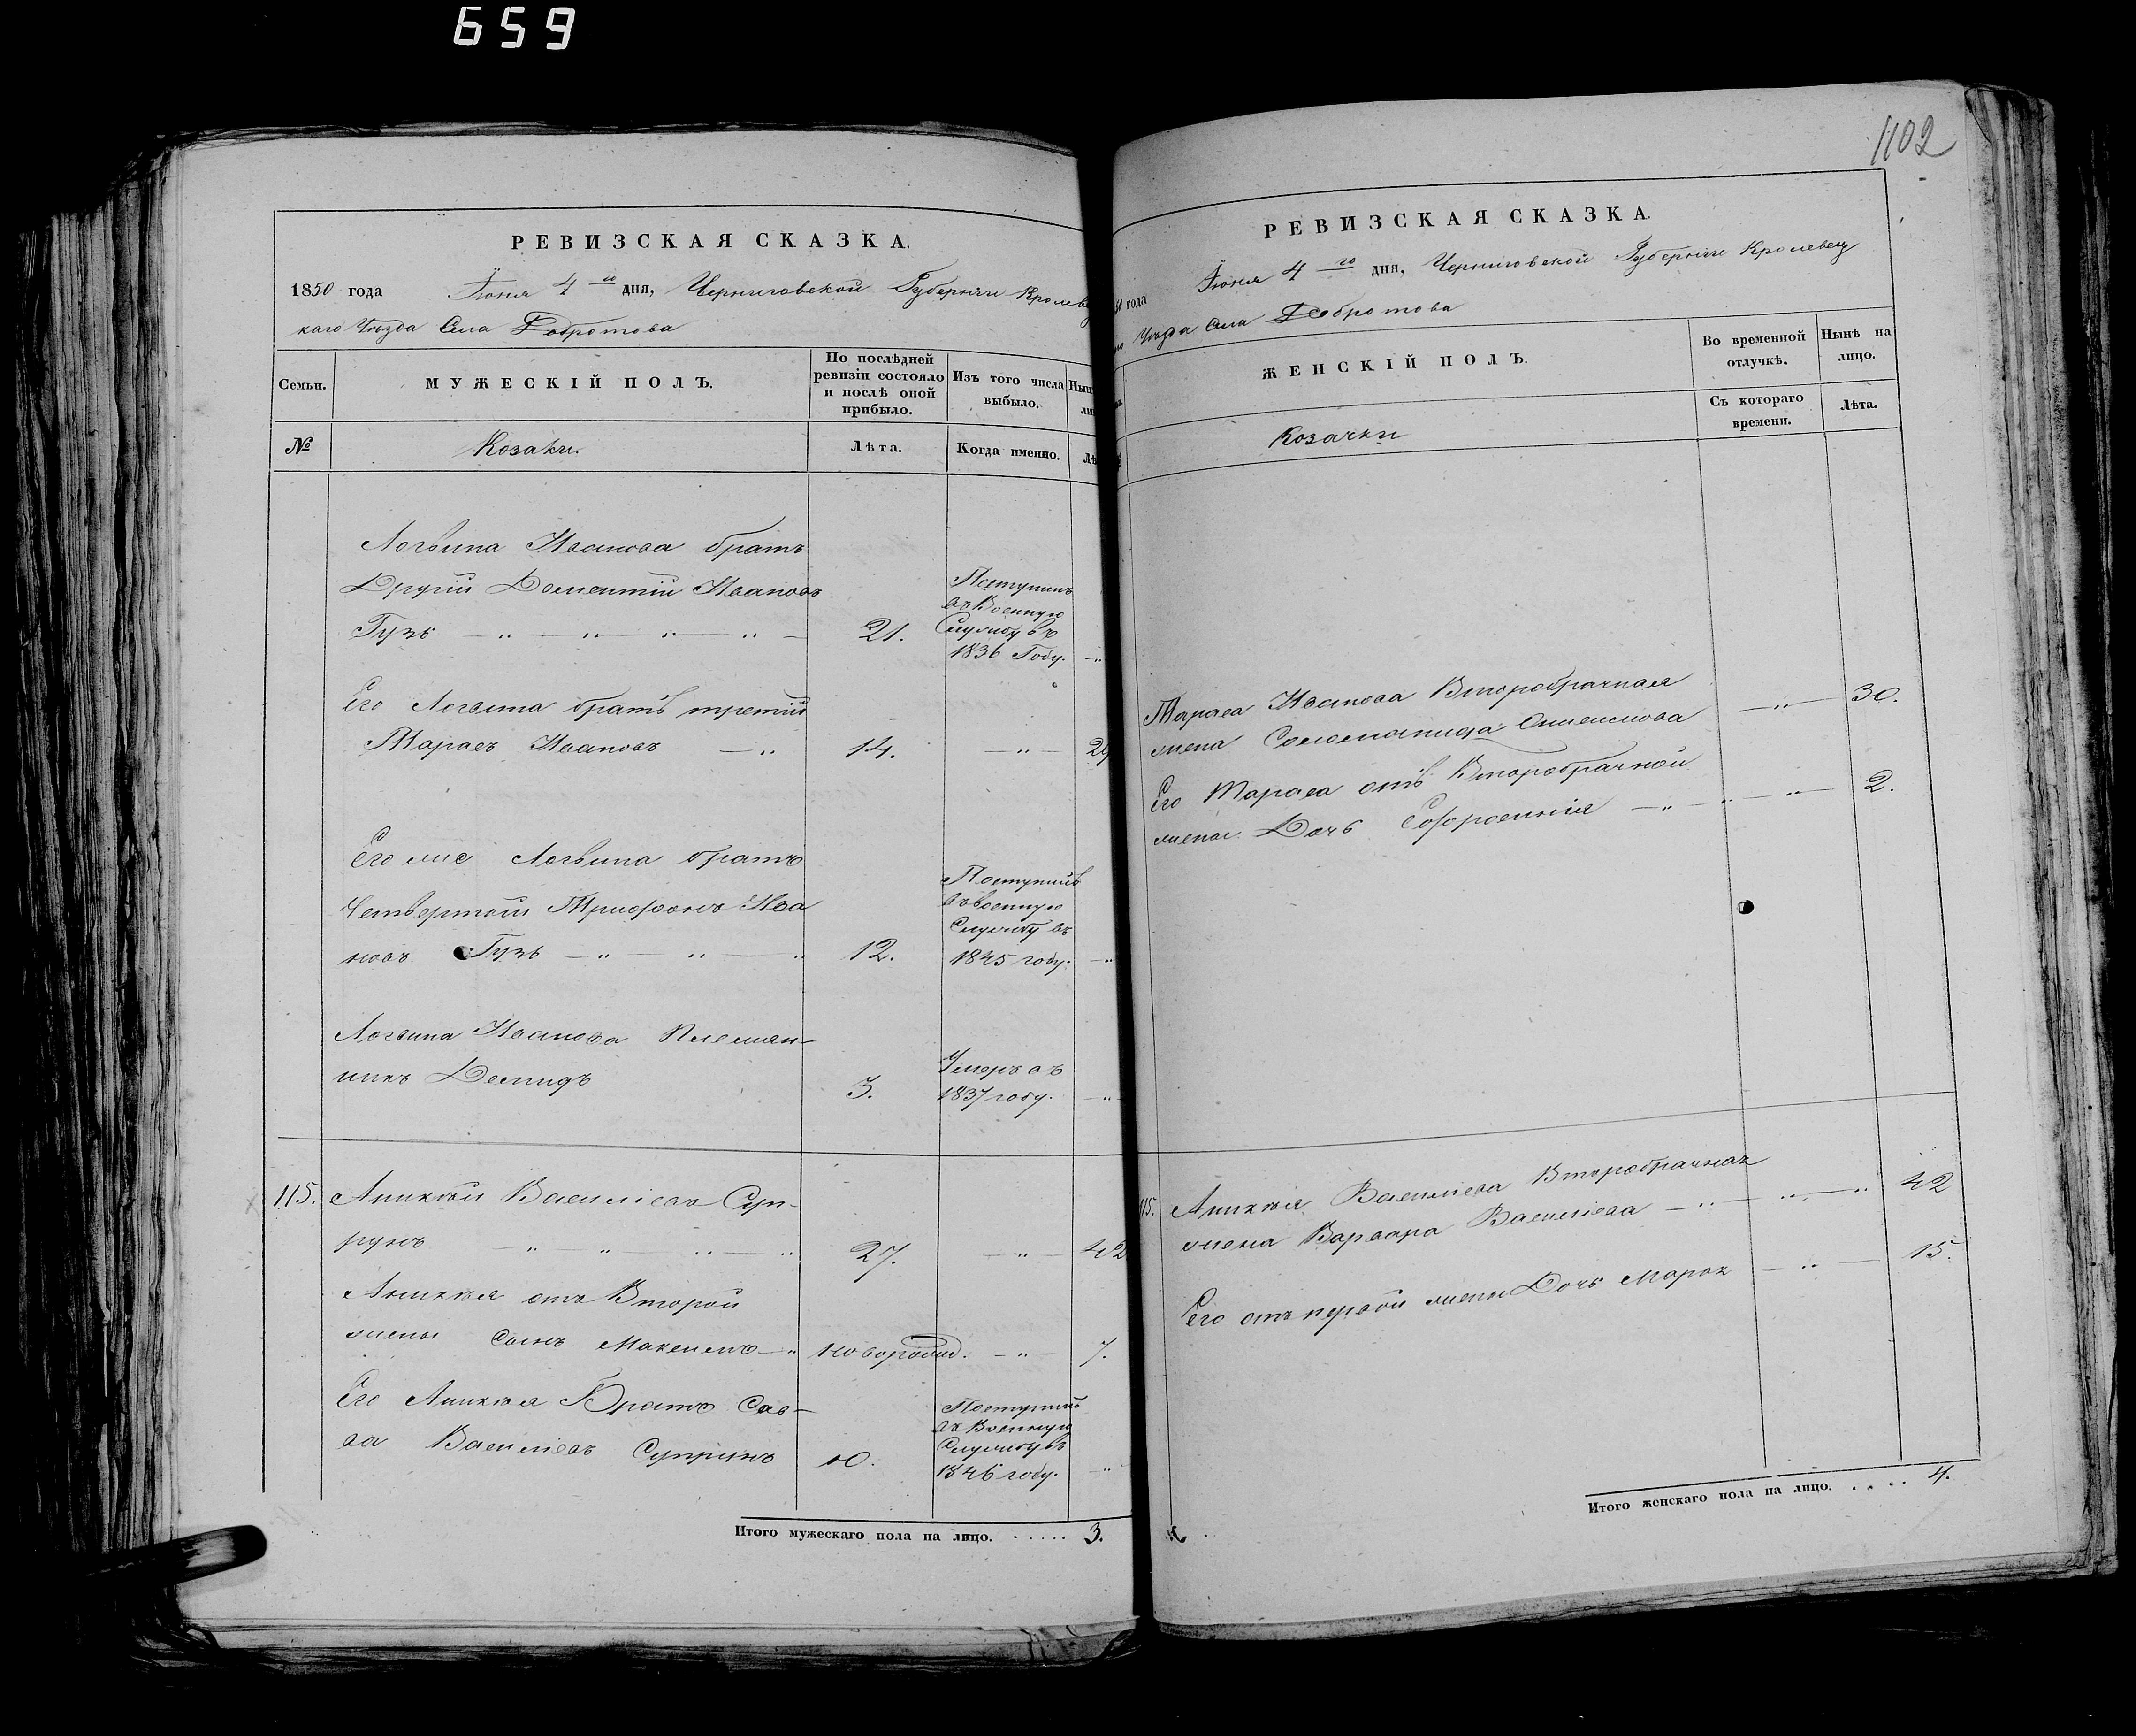 659
РЕВИЗСКАЯ СКАЗКА.
1850 года Іюня 4 го дня, Черниговской Губерніи Кролевец
каго Уѣзда Села Добротова
Семьи.
МУЖЕСКІЙ ПОЛЪ.
По послѣдней ревизіи состояло и послѣ оной прибыло.
Изъ того числа выбыло.
№
Козаки.
Лѣта.
Когда именно.
Логвина Иванова братъ
Другій Доментій Ивановъ
Гузь 21.
Поступилъ
въ Военную
Службу въ
1836 Году.
Его Логвина братъ третій
Тарасъ Ивановъ 14. 29
Его же Логвина братъ
Четвертый Трифонъ Ива
новъ Гузь 12.
Поступилъ
въ военную
Службу въ
1845 году.
Логвина Иванова Племян-
никъ Демидъ 3.
Умеръ въ
1837 году.
115. Аникѣй Васильевъ Суп-
рунъ 27. 42
Аникѣя отъ Второй
жены сынъ Максимъ новорожд. 7.
Его Аникѣя Братъ Сав-
ва Васильевъ Супрунъ 10.
Поступилъ
въ Военную
Службу въ
1846 году.
Итого мужескаго пола на лицо. . . . . . 3.
1102
РЕВИЗСКАЯ СКАЗКА.
года Іюня 4 го дня, Черниговской Губерніи Кролевец
Уѣзда Села Добротова
ЖЕНСКІЙ ПОЛЪ.
Во временной отлучкѣ.
Нынѣ на лицо.
Козачки
Съ котораго времени.
Лѣта.
Тараса Иванова Второбрачная
жена Соломанида 30.
Его Тараса отъ Второбрачной
жены Дочь Ефросинія 2.
115. Аникѣя Васильева Второбрачная
жена Варвара Васильева 42
Его отъ первой жены Дочь Мария 15.
Итого женскаго пола на лицо. . . . . 4.